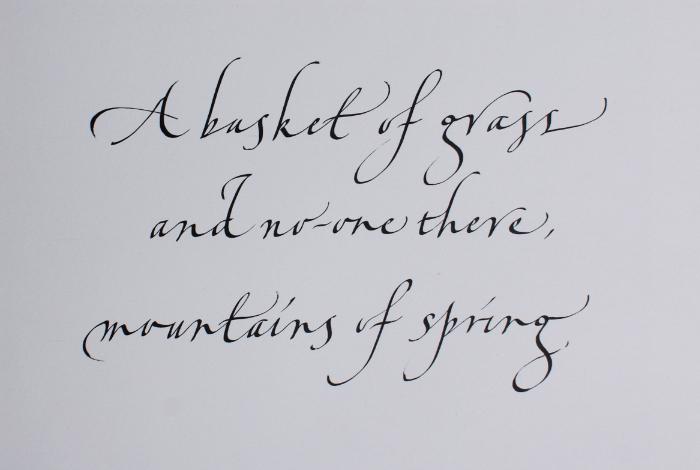 A basket of grass
and no-one there,
mountains of spring.